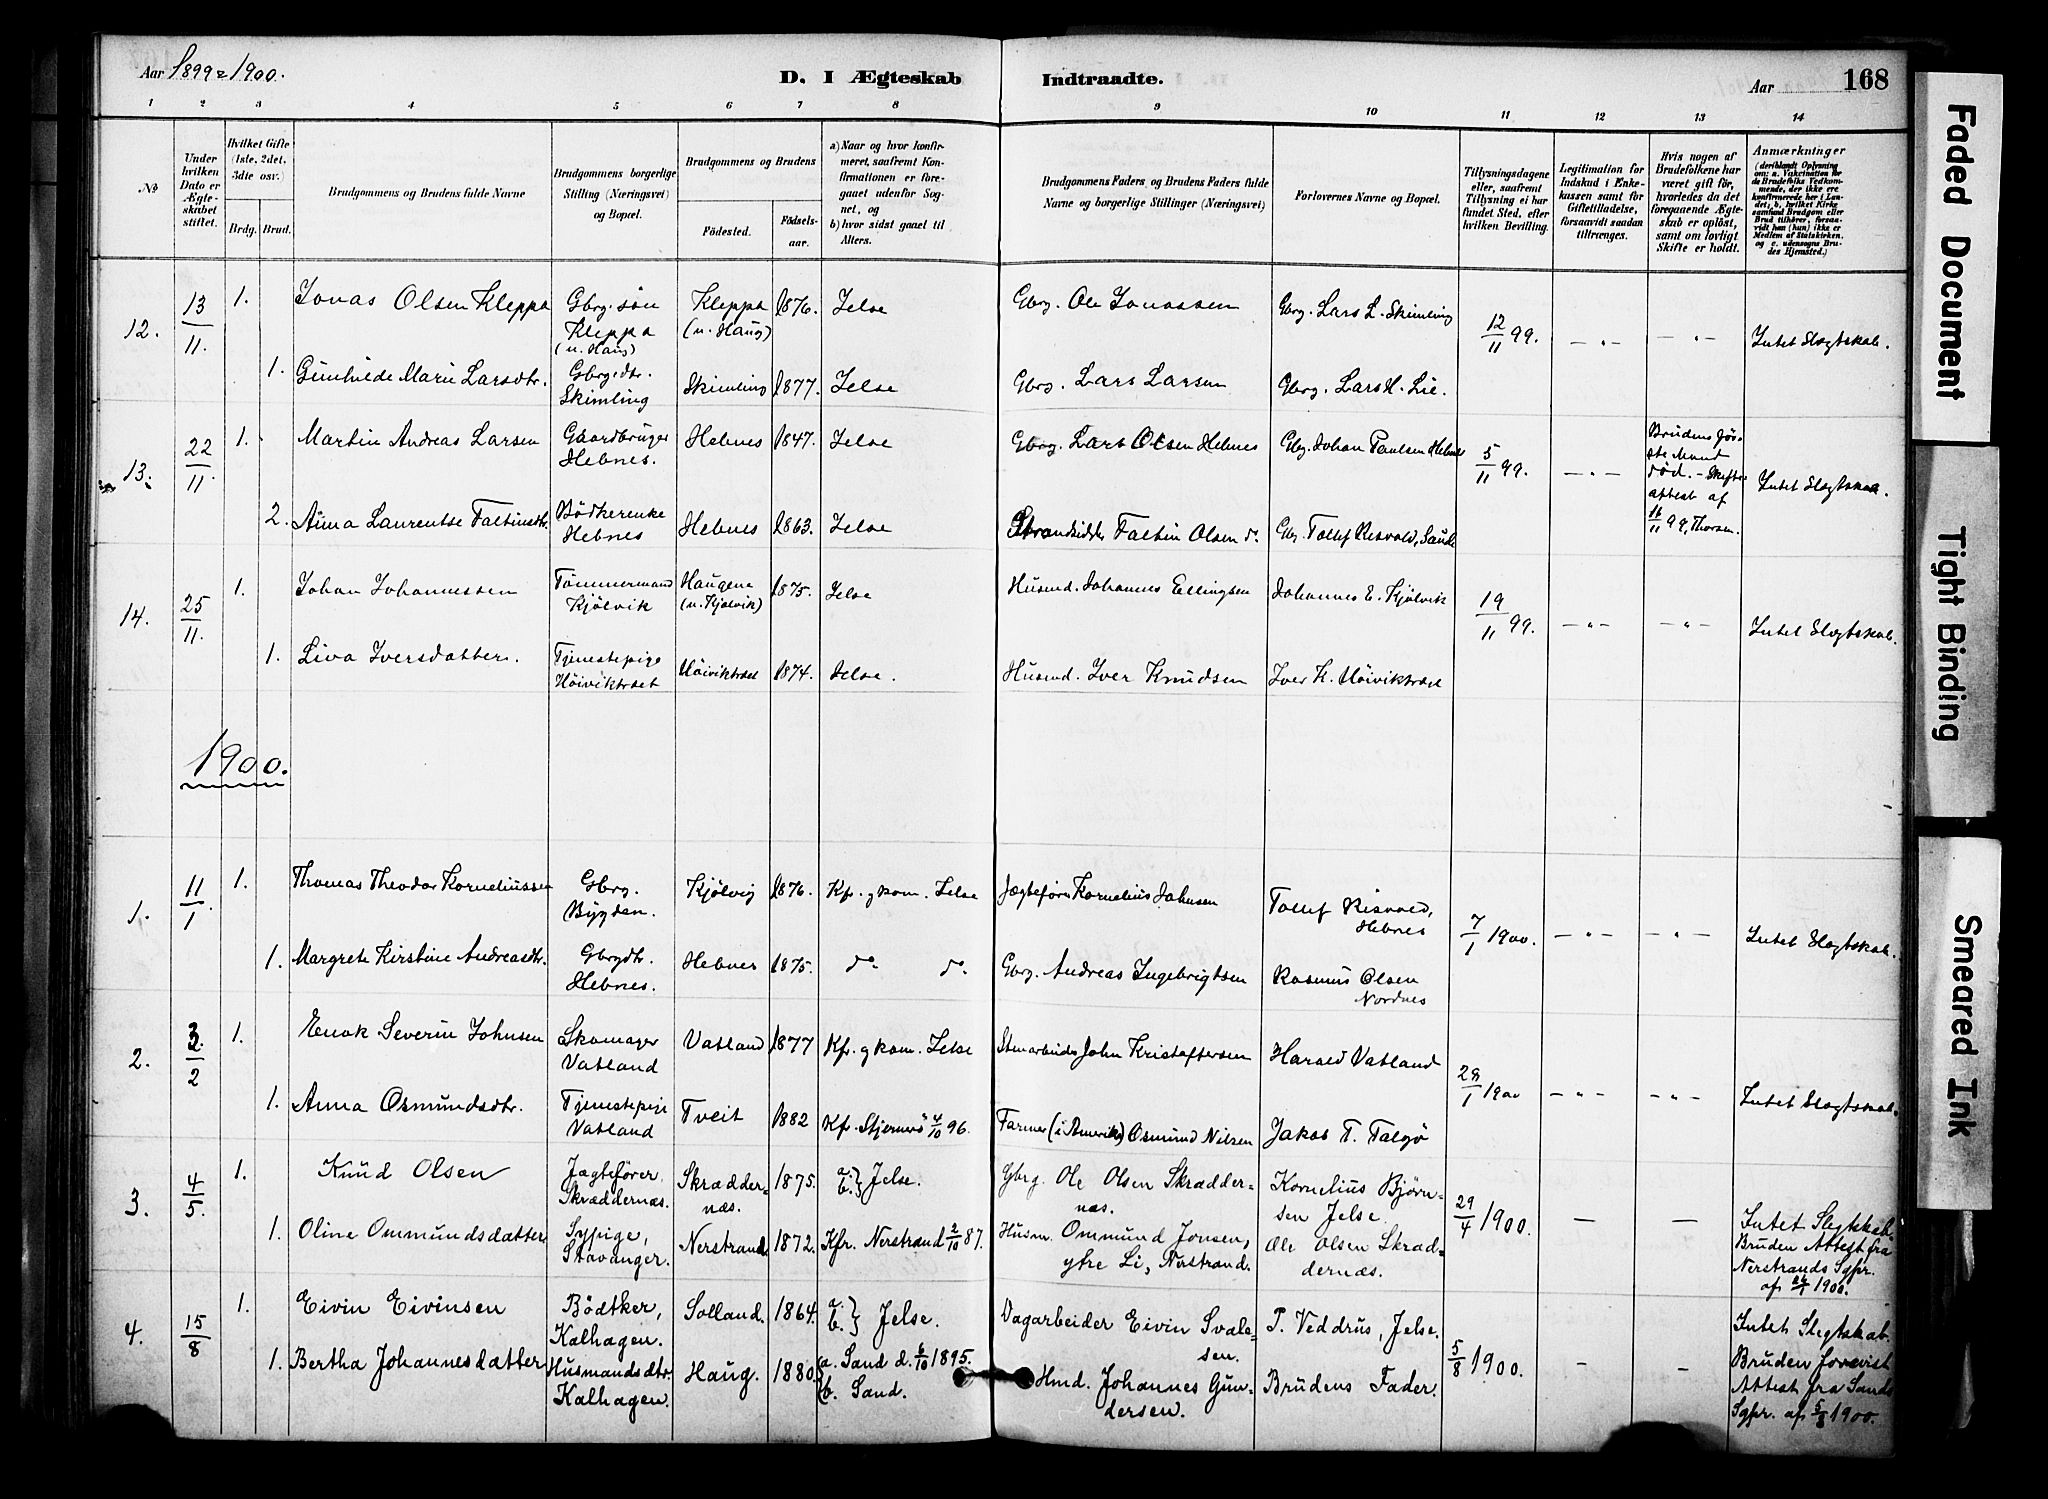 Aar 1899=1900.
D. I Ægteskab Indtraadte.
Aar
168
1 2 3 4 5 6 7 8 9 10 11 12 13 14
No
Under hvilken Dato er Ægteskabet stiftet.
Hvilket Gifte (1ste, 2det, 3die osv.)
Brdg. Brud.
Brudgommens og Brudens fulde Navne
Brudgommens borgerlige Stilling (Næringsvei) og Bopæl.
Brudgommens og Brudens
Fødested. Fødselsaar.
a) Naar og hvor konfirmeret, saafremt Konfirmationen er foregaaet udenfor Sognet, og
b) hvor sidst gaael til Alters.
Brudgommens Faders og Brudens Faders fulde Navne og borgerlige Stillinger (Næringsvei)
Forlovernes Navne og Bopæl.
Tillysningsdagene eller, saafremt Tillysning ei har fundet Sted, efter hvilken Bevilling.
Legitimation for Indskud i Enkekassen samt for Giftetilladelse, forsaavidt saadan tiltrænges.
Hvis nogen af Brudefolkene har været gift før, hvorledes da det foregaaende Ægteskab er opløst, samt om lovligt Skifte er holdt.
Anmærkninger
(deriblandt Oplysning om: a. Vakcination for de Brudefolks Vedkommende, der ikke ere konfirmerede her i Landet, b. hvilket Kirkesamfund Brudgom eller Brud tilhører, forsaavidt han (hun) ikke er Medlem af Statskirken, og c. udensogns Brudes Hjemsted.)
12. 13/11. 1. Jonas Olsen Kleppa Gbrg. søn Kleppa (u. Haug) Kleppa (u. Haug) 1876. Jelse Gbrg. Ole Jonassen Gbrg. Lars L. Skimling 12/11 99. — „ — — „ — Intet Slægtskab.
1. Gunhilde Marie Larsdtr. Gbrg.dtr. Skimling Skimling 1877. Jelse Gbrg. Lars Larsen Gbrg. Lars H. Lie.
13. 22/11. 1. Martin Andreas Larsen Gaardbruger Hebnes. Hebnes 1847. Jelse Gbrg. Lars Olsen Hebnes Gbg. Johan Paulsen Hebnes 5/11 99. — „ — Brudens første Mand død. - Skifteattest af 16/11 99, Thorsen. Intet Slægtskab.
2. Anna Laurentse Faltinsdtr. Bødkerenke Hebnes Hebnes 1863. Jelse Strandsidder Faltin Olsen do. Gbr. Tollef Risvold, Saude
14. 25/11. 1. Johan Johannessen Tømmermand Kjølvik Haugene (u. Kjølvik) 1875. Jelse Husmd. Johannes Ellingsen Johannes E. Kjølvik 19/11 99. — „ — — „ — Intet Slægtskab.
1. Liva Iversdatter. Tjenestepige Høiviktræet Høiviktræet 1874. Jelse. Husmd. Iver Knudsen Iver K. Høiviktræet
1900.
1. 11/1. 1. Thomas Theodor Korneliussen Gbrg. Bygden. Kjølvig 1876. Kfr. g kom. Jelse Jægtefører Kornelius Johnsen Tollef Risvold, Hebnes 7/1 1900. — „ — — „ — Intet Slægtskab.
1. Margrete Kirstine Andreasdtr. Gbrgdtr. Hebnes. Hebnes 1875. do. do. Gbrg. Andreas Ingebrigtsen Rasmus Olsen Nordnes
2. 3/2 1. Enok Severin Johnsen Skomager Vatland Vatland 1877 Kfr. g kom. Jelse Stenarbeider John Kristoffersen Harald Vatland 28/1 1900 — „ — — „ — Intet Slægtskab.
1. Anna Osmundsdtr. Tjenestepige Vatland Tveit 1882 Kfr. Stjernerø 4/10 96. Farmer (i Amerika) Osmund Nilsen Jakob T. Talgø
3. 4/5. 1. Knud Olsen Jægtefører Skræddernæs. Skræddernæs. 1875. a. b. } Jelse. Gbrg. Ole Olsen Skræddernæs. Kornelius Bjørnsen Jelse. 29/4 1900. — — Intet Slegtskab.
1. Oline Ommundsdatter Sypige, Stavanger. Nerstrand 1872. Kfr. Nerstrand 2/10 87. Husm. Ommund Jonsen, ytre Li, Nerstrand. Ole Olsen Skræddernæs. Bruden Attest fra Nerstrands Sgpr. af 24/4 1900.
4. 15/8 1. Eivin Eivinsen Bødtker, Kalhagen. Solland. 1864. a. b. } Jelse. Dagarbeider Eivin Svalesen. P. Veddrus, Jelse. 5/8 1900. - - Intet Slegtskab.
1. Bertha Johannesdatter Husmandsdtr. Kalhagen. Haug. 1880. a. Sand d. 6/10 1895. b. Sand. Hmd. Johannes Gundersen. Brudens Fader. Bruden forevist Attest fra Sands Sgpr. af 5/8 1900.
Faded Document
Tight Binding
Smeared Ink